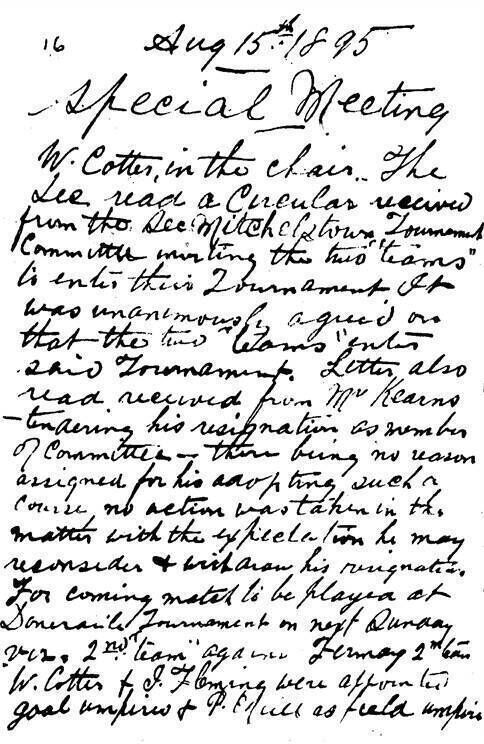 16 Aug 15th 1895
Special Meeting
W. Cotter in the chair. The
Sec read a Circular received
from the Sec Mitchelstown Tournament
Committee inviting the two "teams"
to enter their Tournament It
was unanimously agreed on
that the two "teams" enter
said Tournament. Letter also
read received from Mr Kearns
tendering his resignation as member
of Committee - there being no reason
assigned for his adopting such a
course, no action was taken in the
matter with the expectation he may
reconsider & withdraw his resignation.
For coming match to be played at
Doneraile Tournament on next Sunday
viz. 2nd "team" against Fermoy 2nd team
W. Cotter & J. Fleming were appointed
goal umpires & P. as field umpire